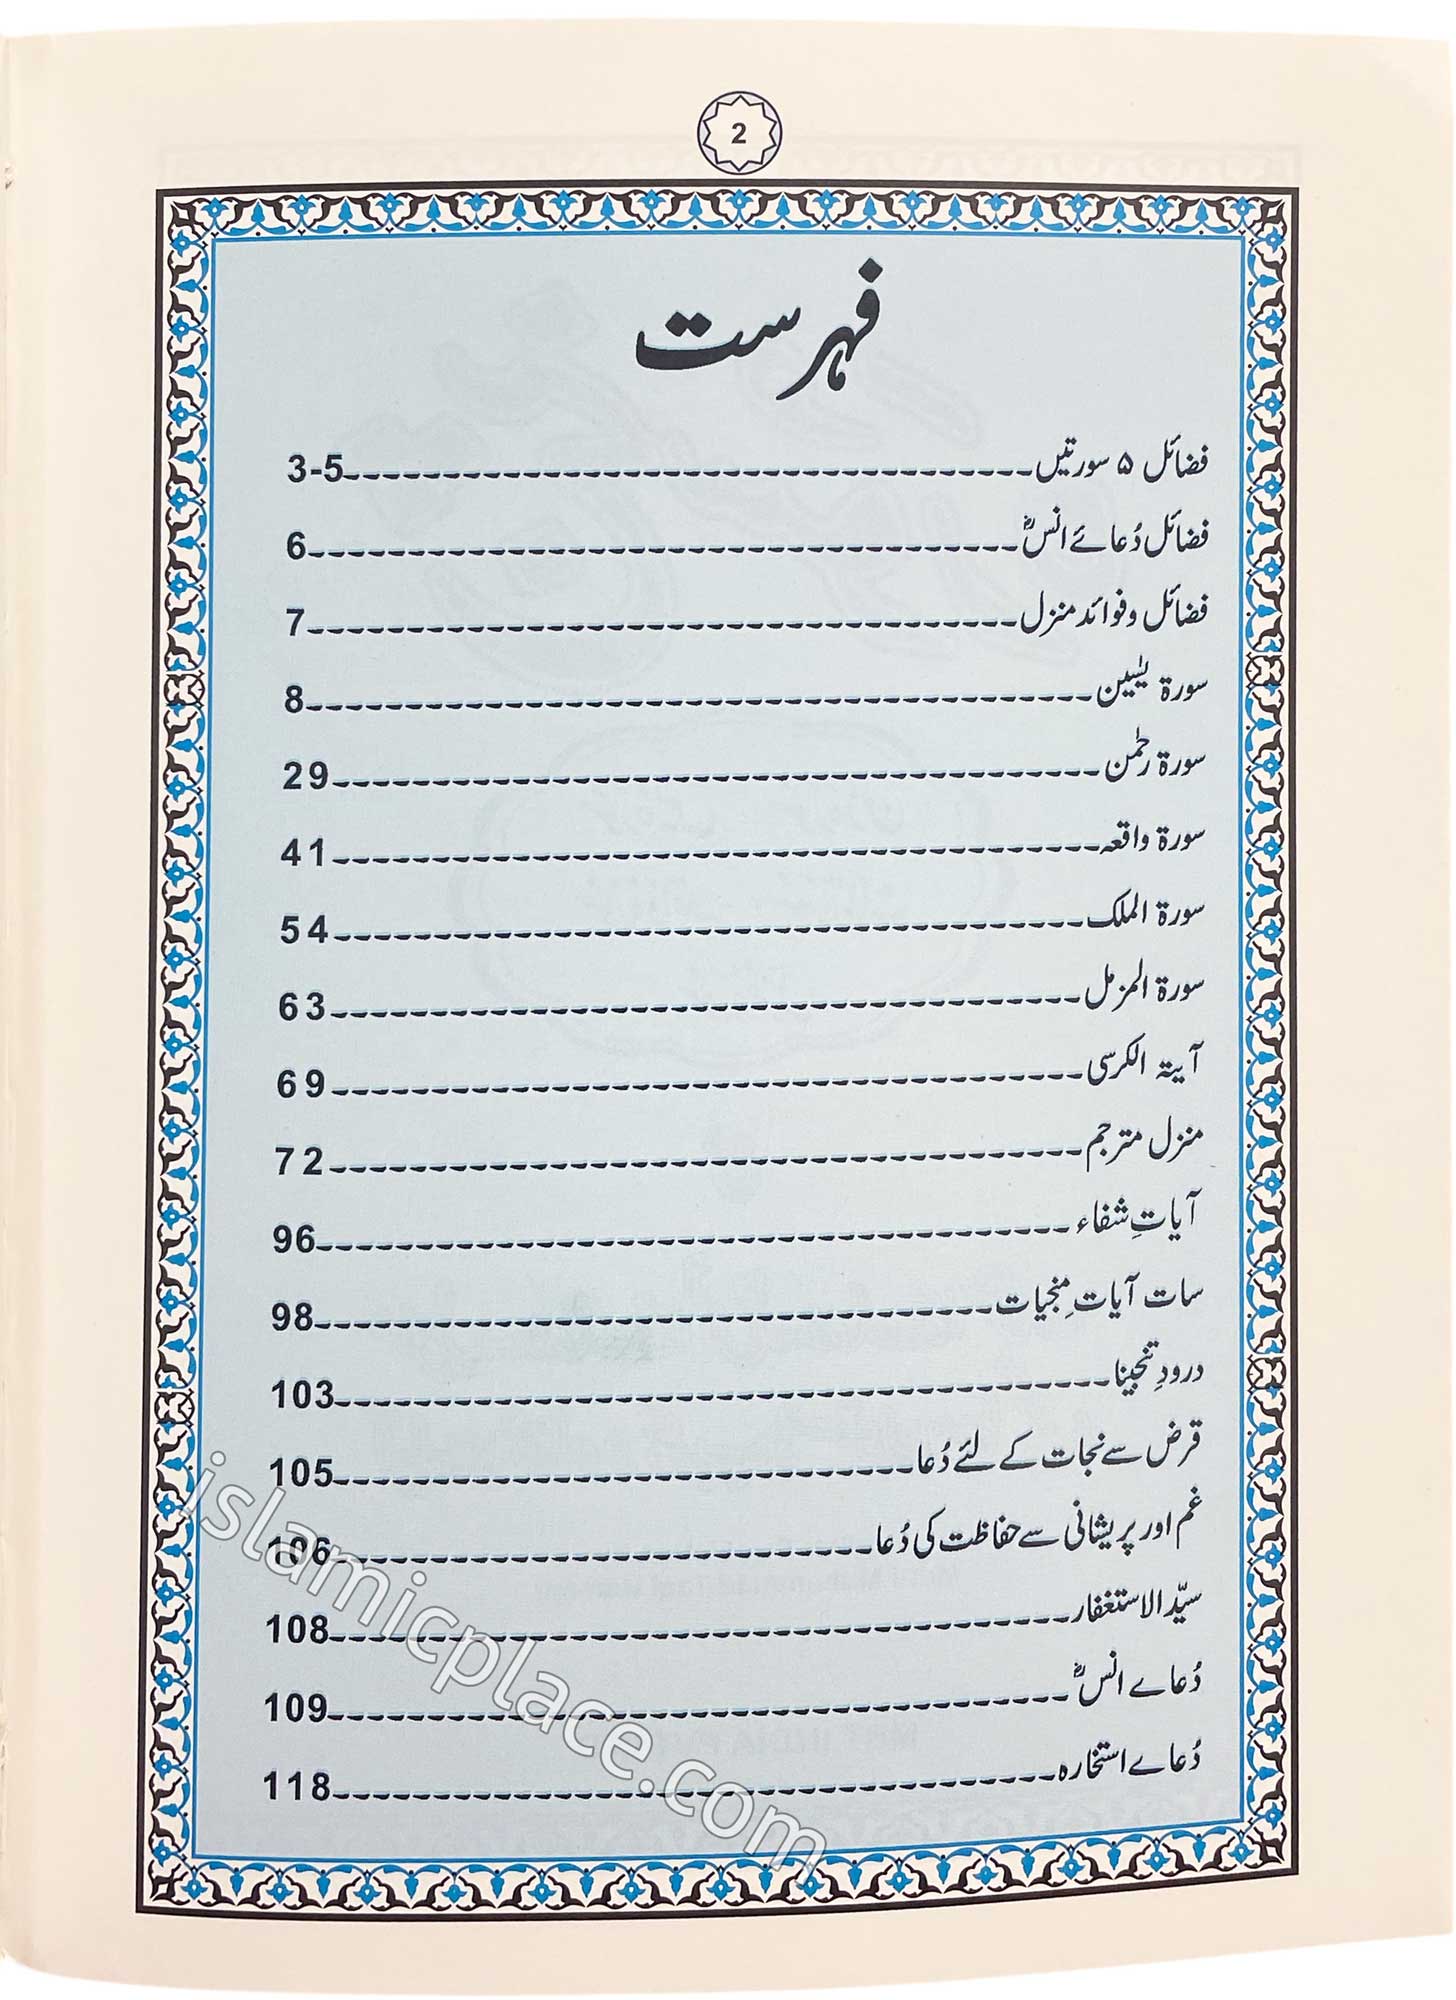 2
فہرست
فضائل ۵ سورتیں 3-5
فضائل دُعائے انسؓ 6
فضائل و فوائد منزل 7
سورۃ یٰسین 8
سورۃ رحمٰن 29
سورۃ واقعہ 41
سورۃ الملک 54
سورۃ المزمل 63
آیتہ الکرسی 69
منزل مترجم 72
آیاتِ شفاء 96
سات آیاتِ منجیات 98
درودِ تنجینا 103
قرض سے نجات کے لئے دُعا 105
غم اور پریشانی سے حفاظت کی دُعا 106
سیّد الاستغفار 108
دُعاے انسؓ 109
دُعاے استخارہ 118
islamicplace.com